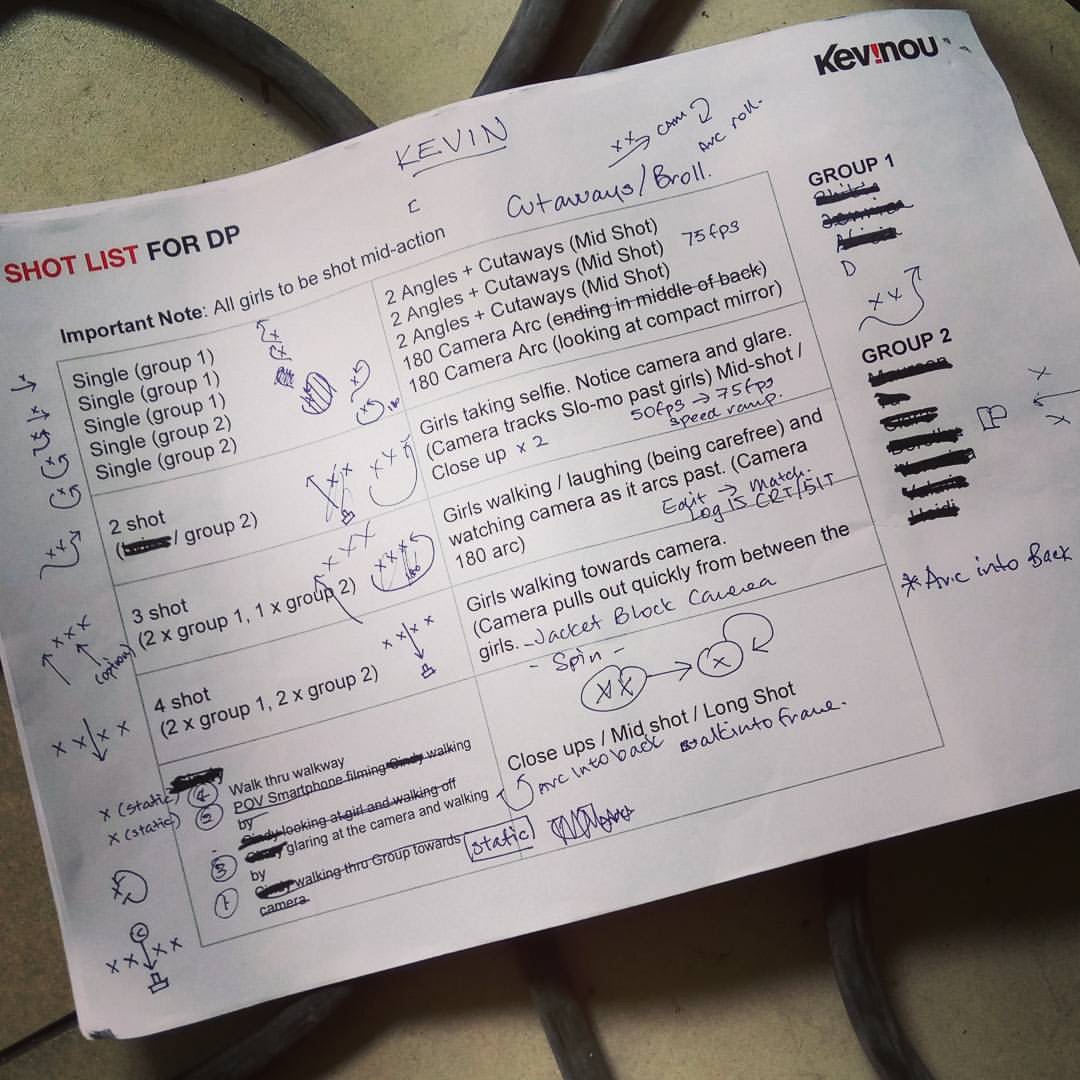 Kev!nou
KEVIN
xx CAM
Arc roll.
Cutaways/Broll.
SHOT LIST FOR DP
Important Note: All girls to be shot mid-action
Single (group 1)
Single (group 1)
Single (group 1)
Single (group 2)
Single (group 2)
2 Angles + Cutaways (Mid Shot)
2 Angles + Cutaways (Mid Shot) 75fps
2 Angles + Cutaways (Mid Shot)
180 Camera Arc (ending in middle of back)
180 Camera Arc (looking at compact mirror)
2 shot
( / group 2)
Girls taking selfie. Notice camera and glare.
(Camera tracks Slo-mo past girls) Mid-shot /
Close up x 2
50fps → 75fps
speed ramp.
3 shot
(2 x group 1, 1 x group 2)
Girls walking / laughing (being carefree) and
watching camera as it arcs past. (Camera
180 arc)
→ match.
4 shot
(2 x group 1, 2 x group 2)
Girls walking towards camera.
(Camera pulls out quickly from between the
girls. - Jacket Block Camera
- Spin -
(option)
x (static)
x (static)
4 Walk thru walkway
POV Smartphone filming Cindy walking
by
Cindy looking at girl and walking off
3 glaring at the camera and walking
by
1 Cindy walking thru Group towards
camera
static
Close ups / Mid shot / Long Shot
Arc into back
walk into frame.
GROUP 1
D
xx
GROUP 2
* Arc into Back